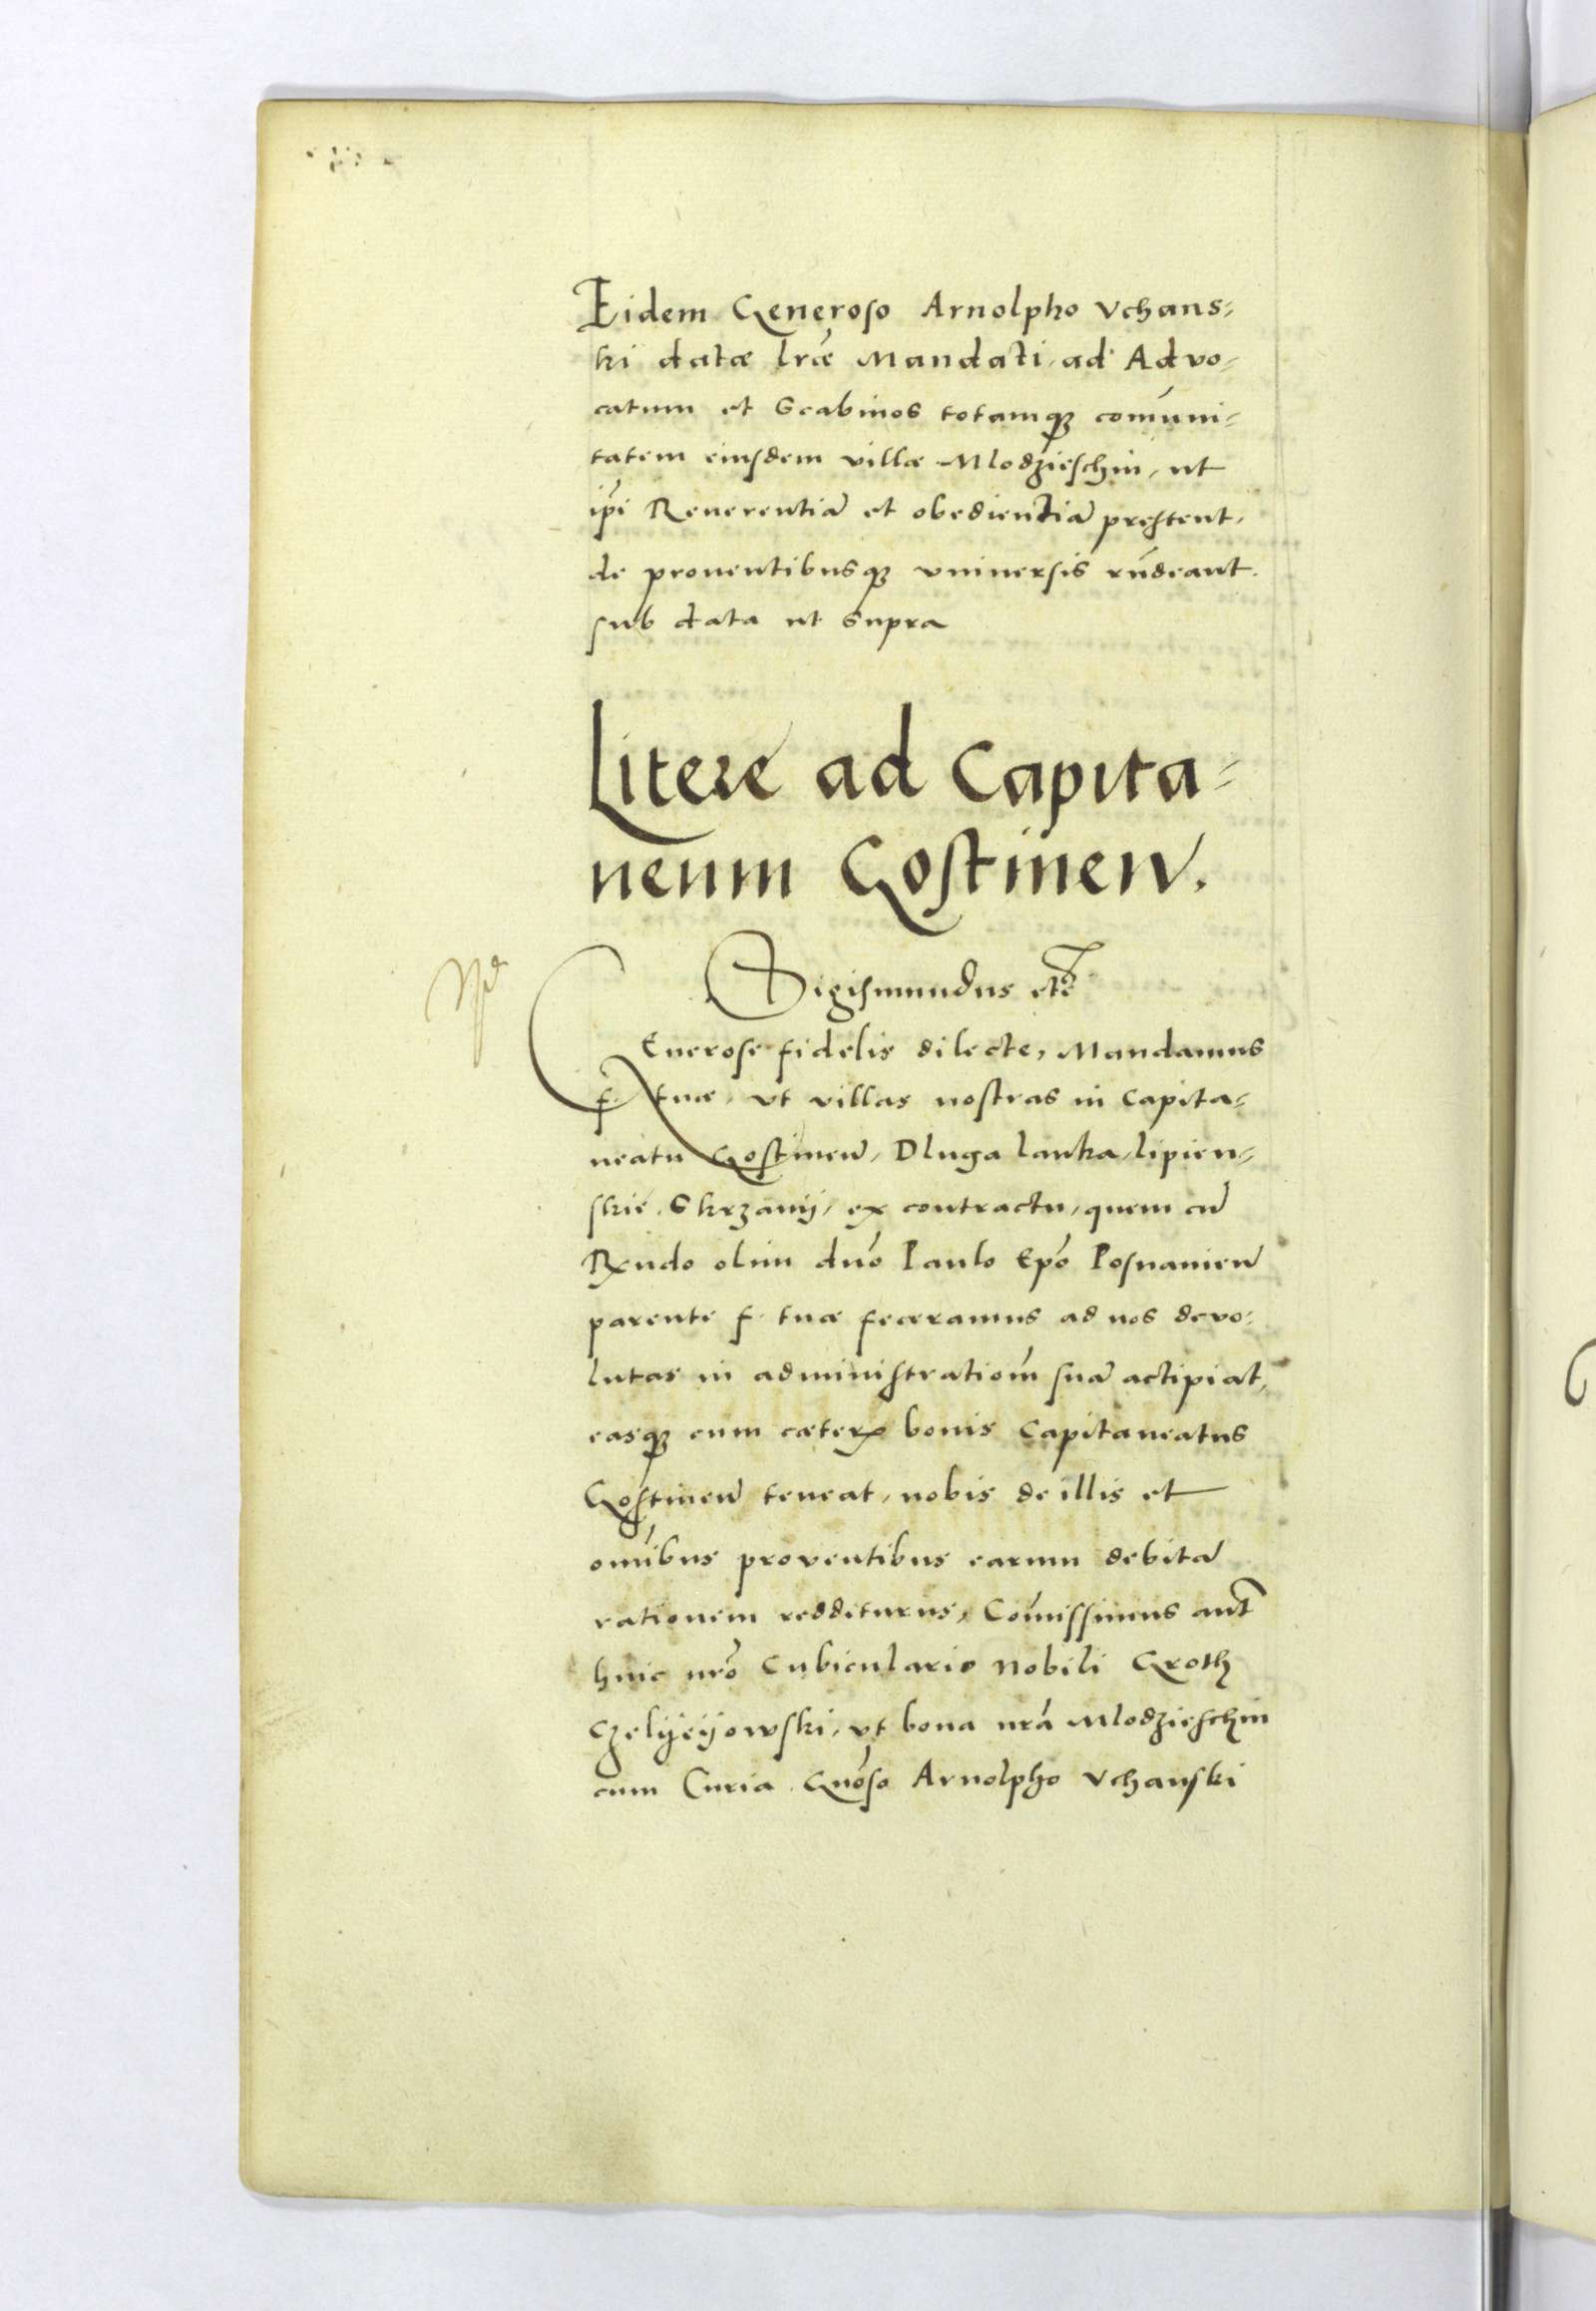 Eidem Generoso Arnolpho Vchans=
ki datæ lr̃æ Mandati, ad Advo=
catum et Scabinos totamq3 com̃uni=
tatem eiusdem villæ Mlodzieschin, ut
ip̃i Reuerentiã et obedientiã prestent,
de prouentibusq3 vniuersis rñdeant.
sub data ut supra
Litere ad Capita=
neum Gostinen̄.
Sigismundus etc̃
Generose fidelis dilecte, Mandamus
f. tuæ, vt villas nostras in Capita=
neatu Gostinen̄, Dluga lanka, lipien=
skie, Skrzanij, ex contractu, quem cũ
Rx̃ndo olim dño Paulo Ep̃o Posnanien̄
parente f. tuæ feceramus ad nos devo=
lutas in administratiom̃ suã actipiat,
easq3 cum cæterꝭ bonis Capitaneatus
Gostinen̄ teneat, nobis de illis et
om̃ibus proventibus earum debitã
rationem redditurus, Com̃issimus aut̃
huic nr̃o Cubiculario Nobili Groth
Czelyeyowski, vt bona nr̃a Mlodzieschin
cum Curia Gnõso Arnolpho Vchanski